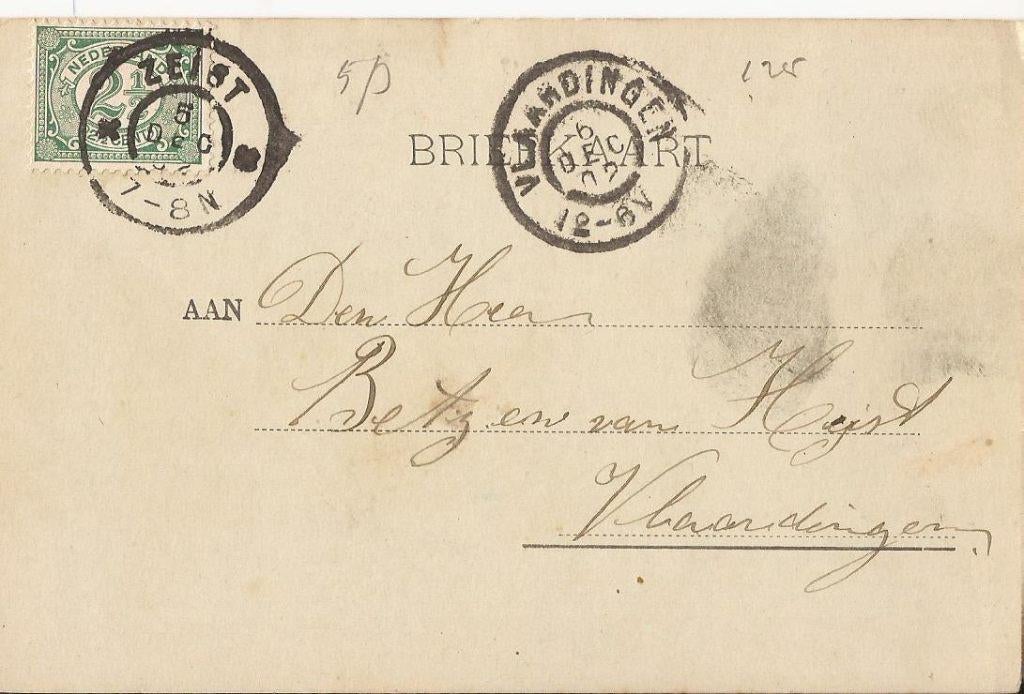 NEDERLAND
2½
2½ CENT
ZEIST
5
DEC
7-8N
5p
VLAARDINGEN
6
DEC
02
12-6V
125
BRIEFKAART
AAN Den Heer
Betzen van Heijst
Vlaardingen.